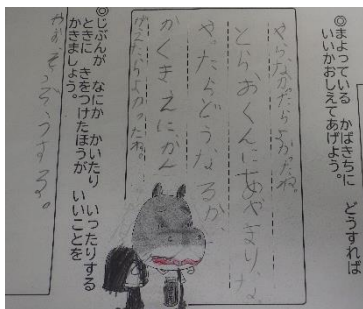 ◎まよっている かばきちに どうすれば
いいかおしえてあげよう。
やらなかたらよかたね。
とらおくんにあやまりな。
やったらどうなるか、
かくきえにかん
がえたらよかったね。
◎じぶんが なにか かいたり いったりする
ときに きをつけたほうが いいことを
かきましょう。